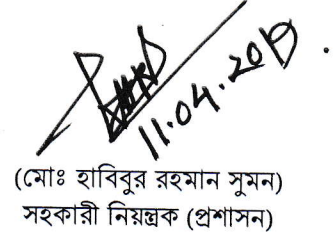 11.04.2019.
(মোঃ হাবিবুর রহমান সুমন)
সহকারী নিয়ন্ত্রক (প্রশাসন)